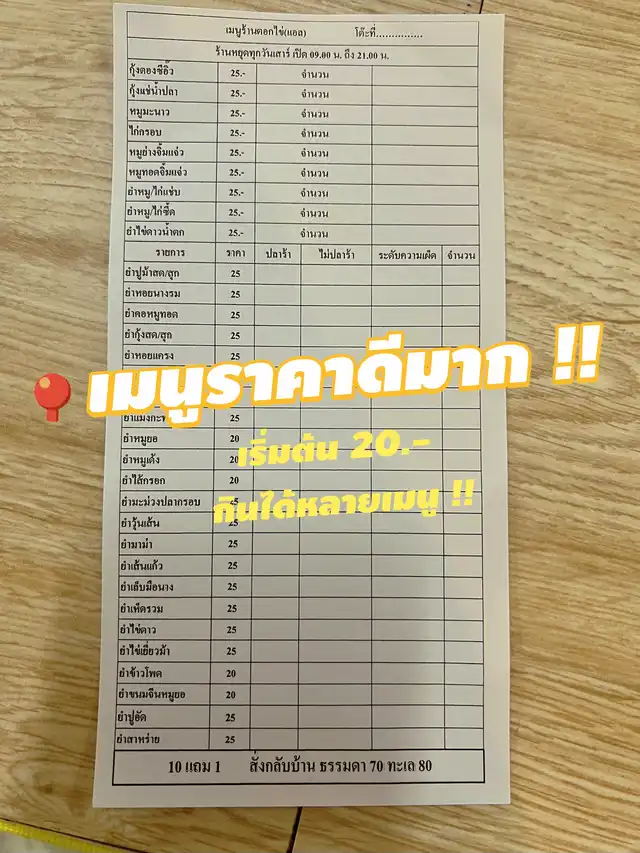 เมนูร้านดอกไข่(แอล) โต๊ะที่...............
ร้านหยุดทุกวันเสาร์ เปิด 09.00 น. ถึง 21.00 น.
กุ้งดองซีอิ๊ว 25.- จำนวน
กุ้งแช่น้ำปลา 25.- จำนวน
หมูมะนาว 25.- จำนวน
ไก่กรอบ 25.- จำนวน
หมูย่างจิ้มแจ่ว 25.- จำนวน
หมูทอดจิ้มแจ่ว 25.- จำนวน
ยำหมู/ไก่แซ่บ 25.- จำนวน
ยำหมู/ไก่ซี๊ด 25.- จำนวน
ยำไข่ดาวน้ำตก 25.- จำนวน
รายการ ราคา ปลาร้า ไม่ปลาร้า ระดับความเผ็ด จำนวน
ยำปูม้าสด/สุก 25
ยำหอยนางรม 25
ยำคอหมูทอด 25
ยำกุ้งสด/สุก 25
ยำหอยแครง 25
เมนูราคาดีมาก !!
25
ยำหมูยอ 20
เริ่มต้น 20.-
ยำหมูเด้ง 20
ยำไส้กรอก 20
ยำมะม่วงปลากรอบ
กินได้หลายเมนู !!
ยำวุ้นเส้น 25
ยำมาม่า 25
ยำเส้นแก้ว 25
ยำเล็บมือนาง 25
ยำเห็ดรวม 25
ยำไข่ดาว 25
ยำไข่เยี่ยวม้า 25
ยำข้าวโพด 20
ยำขนมจีนหมูยอ 20
ยำปูอัด 25
ยำสาหร่าย 25
10 แถม 1 สั่งกลับบ้าน ธรรมดา 70 ทะเล 80